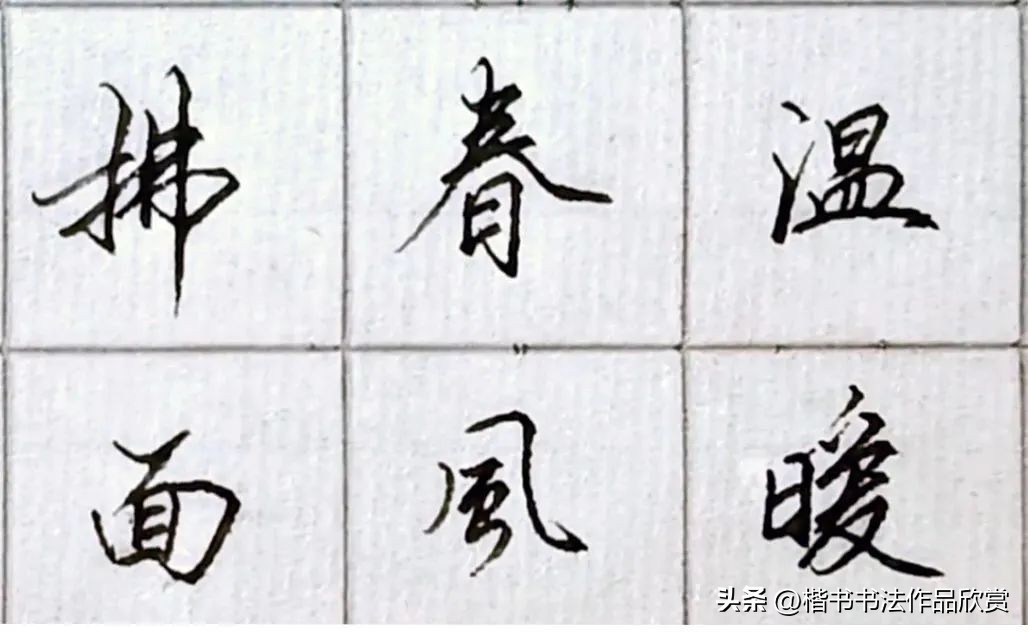 温暖
春風
拂面
头条 @楷书书法作品欣赏